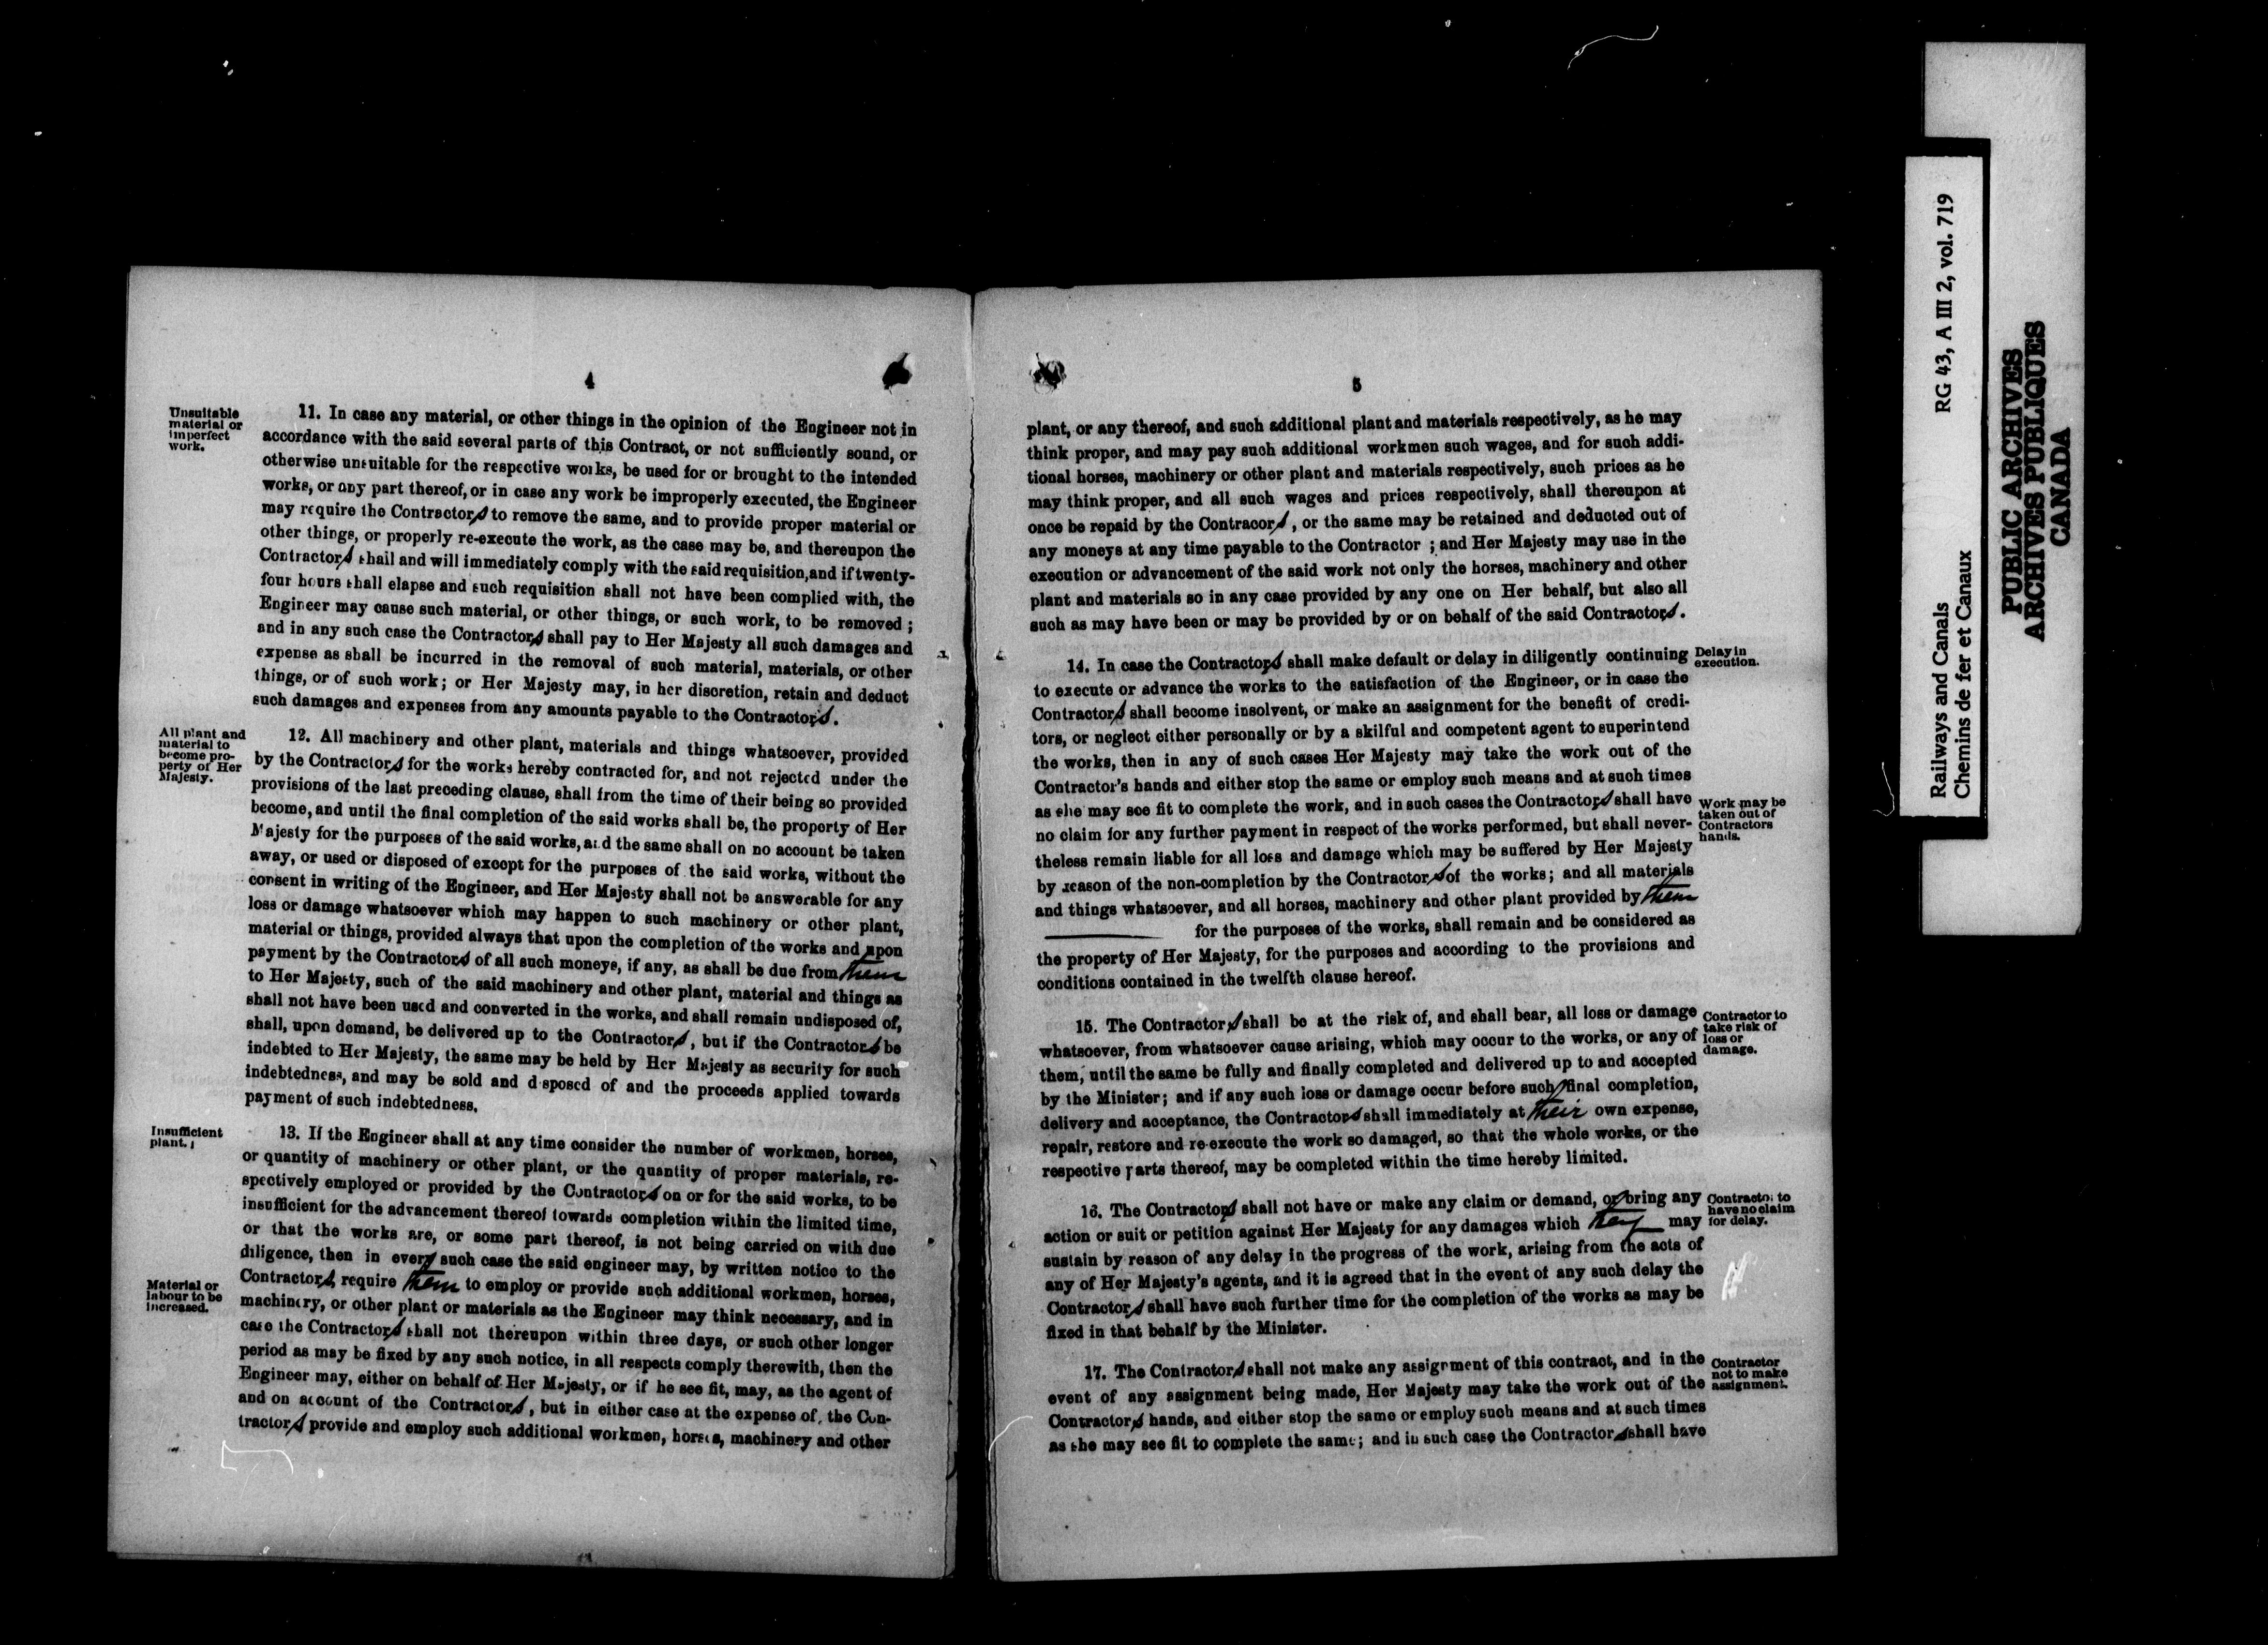 4
Unsuitable
material or
imperfect
work.
11. In case any material, or other things in the opinion of the Engineer not in
accordance with the said several parts of this Contract, or not sufficiently sound, or
otherwise unsuitable for the respective works, be used for or brought to the intended
works, or any part thereof, or in case any work be improperly executed, the Engineer
may require the Contractors to remove the same, and to provide proper material or
other things, or properly re-execute the work, as the case may be, and thereupon the
Contractors shall and will immediately comply with the said requisition, and if twenty-
four hours shall elapse and such requisition shall not have been complied with, the
Engineer may cause such material, or other things, or such work, to be removed ;
and in any such case the Contractors shall pay to Her Majesty all such damages and
expense as shall be incurred in the removal of such material, materials, or other
things, or of such work; or Her Majesty may, in her discretion, retain and deduct
such damages and expenses from any amounts payable to the Contractors.
All plant and
material to
become pro-
perty of Her
Majesty.
12. All machinery and other plant, materials and things whatsoever, provided
by the Contractors for the works hereby contracted for, and not rejected under the
provisions of the last preceding clause, shall from the time of their being so provided
become, and until the final completion of the said works shall be, the property of Her
Majesty for the purposes of the said works, and the same shall on no account be taken
away, or used or disposed of except for the purposes of the said works, without the
consent in writing of the Engineer, and Her Majesty shall not be answerable for any
loss or damage whatsoever which may happen to such machinery or other plant,
material or things, provided always that upon the completion of the works and upon
payment by the Contractors of all such moneys, if any, as shall be due from them
to Her Majesty, such of the said machinery and other plant, material and things as
shall not have been used and converted in the works, and shall remain undisposed of,
shall, upon demand, be delivered up to the Contractors, but if the Contractors be
indebted to Her Majesty, the same may be held by Her Majesty as security for such
indebtedness, and may be sold and disposed of and the proceeds applied towards
payment of such indebtedness.
Insufficient
plant.
13. If the Engineer shall at any time consider the number of workmen, horses,
or quantity of machinery or other plant, or the quantity of proper materials, re-
spectively employed or provided by the Contractors on or for the said works, to be
insufficient for the advancement thereof towards completion within the limited time,
or that the works are, or some part thereof, is not being carried on with due
diligence, then in every such case the said engineer may, by written notice to the
Contractors, require them to employ or provide such additional workmen, horses,
Material or
labour to be
increased.
machinery, or other plant or materials as the Engineer may think necessary, and in
case the Contractors shall not thereupon within three days, or such other longer
period as may be fixed by any such notice, in all respects comply therewith, then the
Engineer may, either on behalf of Her Majesty, or if he see fit, may, as the agent of
and on account of the Contractors, but in either case at the expense of, the Con-
tractors provide and employ such additional workmen, horses, machinery and other
5
plant, or any thereof, and such additional plant and materials respectively, as he may
think proper, and may pay such additional workmen such wages, and for such addi-
tional horses, machinery or other plant and materials respectively, such prices as he
may think proper, and all such wages and prices respectively, shall thereupon at
once be repaid by the Contracors, or the same may be retained and deducted out of
any moneys at any time payable to the Contractor ; and Her Majesty may use in the
execution or advancement of the said work not only the horses, machinery and other
plant and materials so in any case provided by any one on Her behalf, but also all
such as may have been or may be provided by or on behalf of the said Contractors.
14. In case the Contractors shall make default or delay in diligently continuing
Delay in
execution.
to execute or advance the works to the satisfaction of the Engineer, or in case the
Contractors shall become insolvent, or make an assignment for the benefit of credi-
tors, or neglect either personally or by a skilful and competent agent to superintend
the works, then in any of such cases Her Majesty may take the work out of the
Contractor's hands and either stop the same or employ such means and at such times
as she may see fit to complete the work, and in such cases the Contractors shall have
Work may be
taken out of
Contractors
hands.
no claim for any further payment in respect of the works performed, but shall never-
theless remain liable for all loss and damage which may be suffered by Her Majesty
by reason of the non-completion by the Contractors of the works; and all materials
and things whatsoever, and all horses, machinery and other plant provided by them
for the purposes of the works, shall remain and be considered as
the property of Her Majesty, for the purposes and according to the provisions and
conditions contained in the twelfth clause hereof.
15. The Contractors shall be at the risk of, and shall bear, all loss or damage
Contractor to
take risk of
loss or
damage.
whatsoever, from whatsoever cause arising, which may occur to the works, or any of
them, until the same be fully and finally completed and delivered up to and accepted
by the Minister; and if any such loss or damage occur before such final completion,
delivery and acceptance, the Contractors shall immediately at their own expense,
repair, restore and re-execute the work so damaged, so that the whole works, or the
respective parts thereof, may be completed within the time hereby limited.
16. The Contractors shall not have or make any claim or demand, or bring any
Contractor to
have no claim
for delay.
action or suit or petition against Her Majesty for any damages which they may
sustain by reason of any delay in the progress of the work, arising from the acts of
any of Her Majesty's agents, and it is agreed that in the event of any such delay the
Contractors shall have such further time for the completion of the works as may be
fixed in that behalf by the Minister.
17. The Contractors shall not make any assignment of this contract, and in the
Contractor
not to make
assignment.
event of any assignment being made, Her Majesty may take the work out of the
Contractors hands, and either stop the same or employ such means and at such times
as she may see fit to complete the same; and in such case the Contractors shall have
Railways and Canals RG 43, A III 2, vol. 719
Chemins de fer et Canaux
PUBLIC ARCHIVES
ARCHIVES PUBLIQUES
CANADA